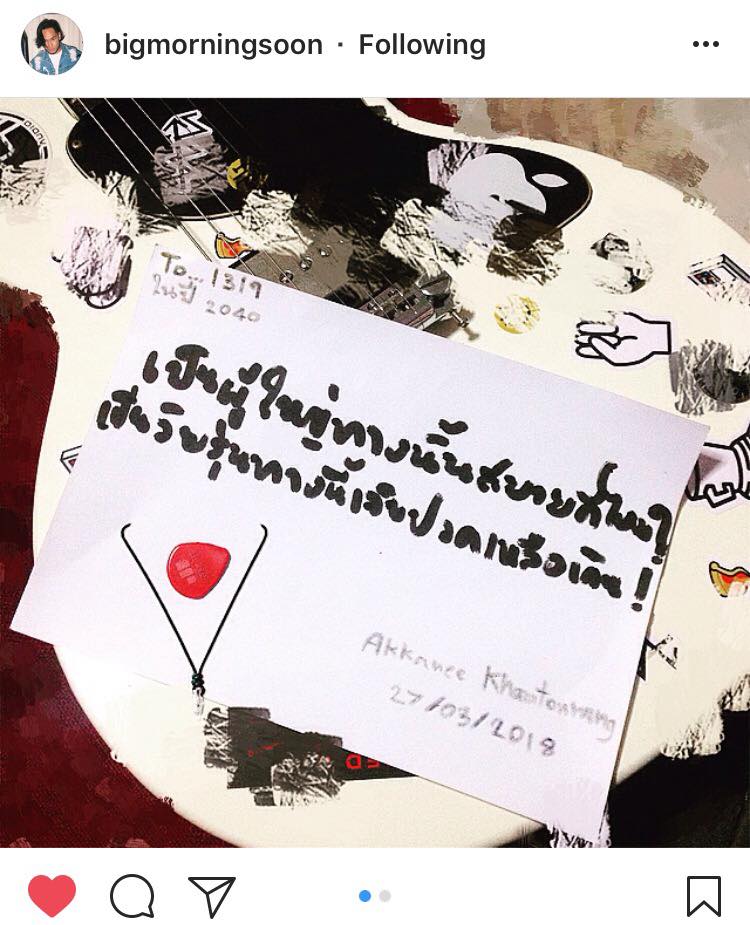 bigmorningsoon · Following
To.. 1319
ในปี 2040
เป็นผู้ใหญ่ทางนั้นสบายดีไหม?
เป็นวัยรุ่นทางนี้เจ็บปวดเหลือเกิน!
Akkanee
27/03/2018